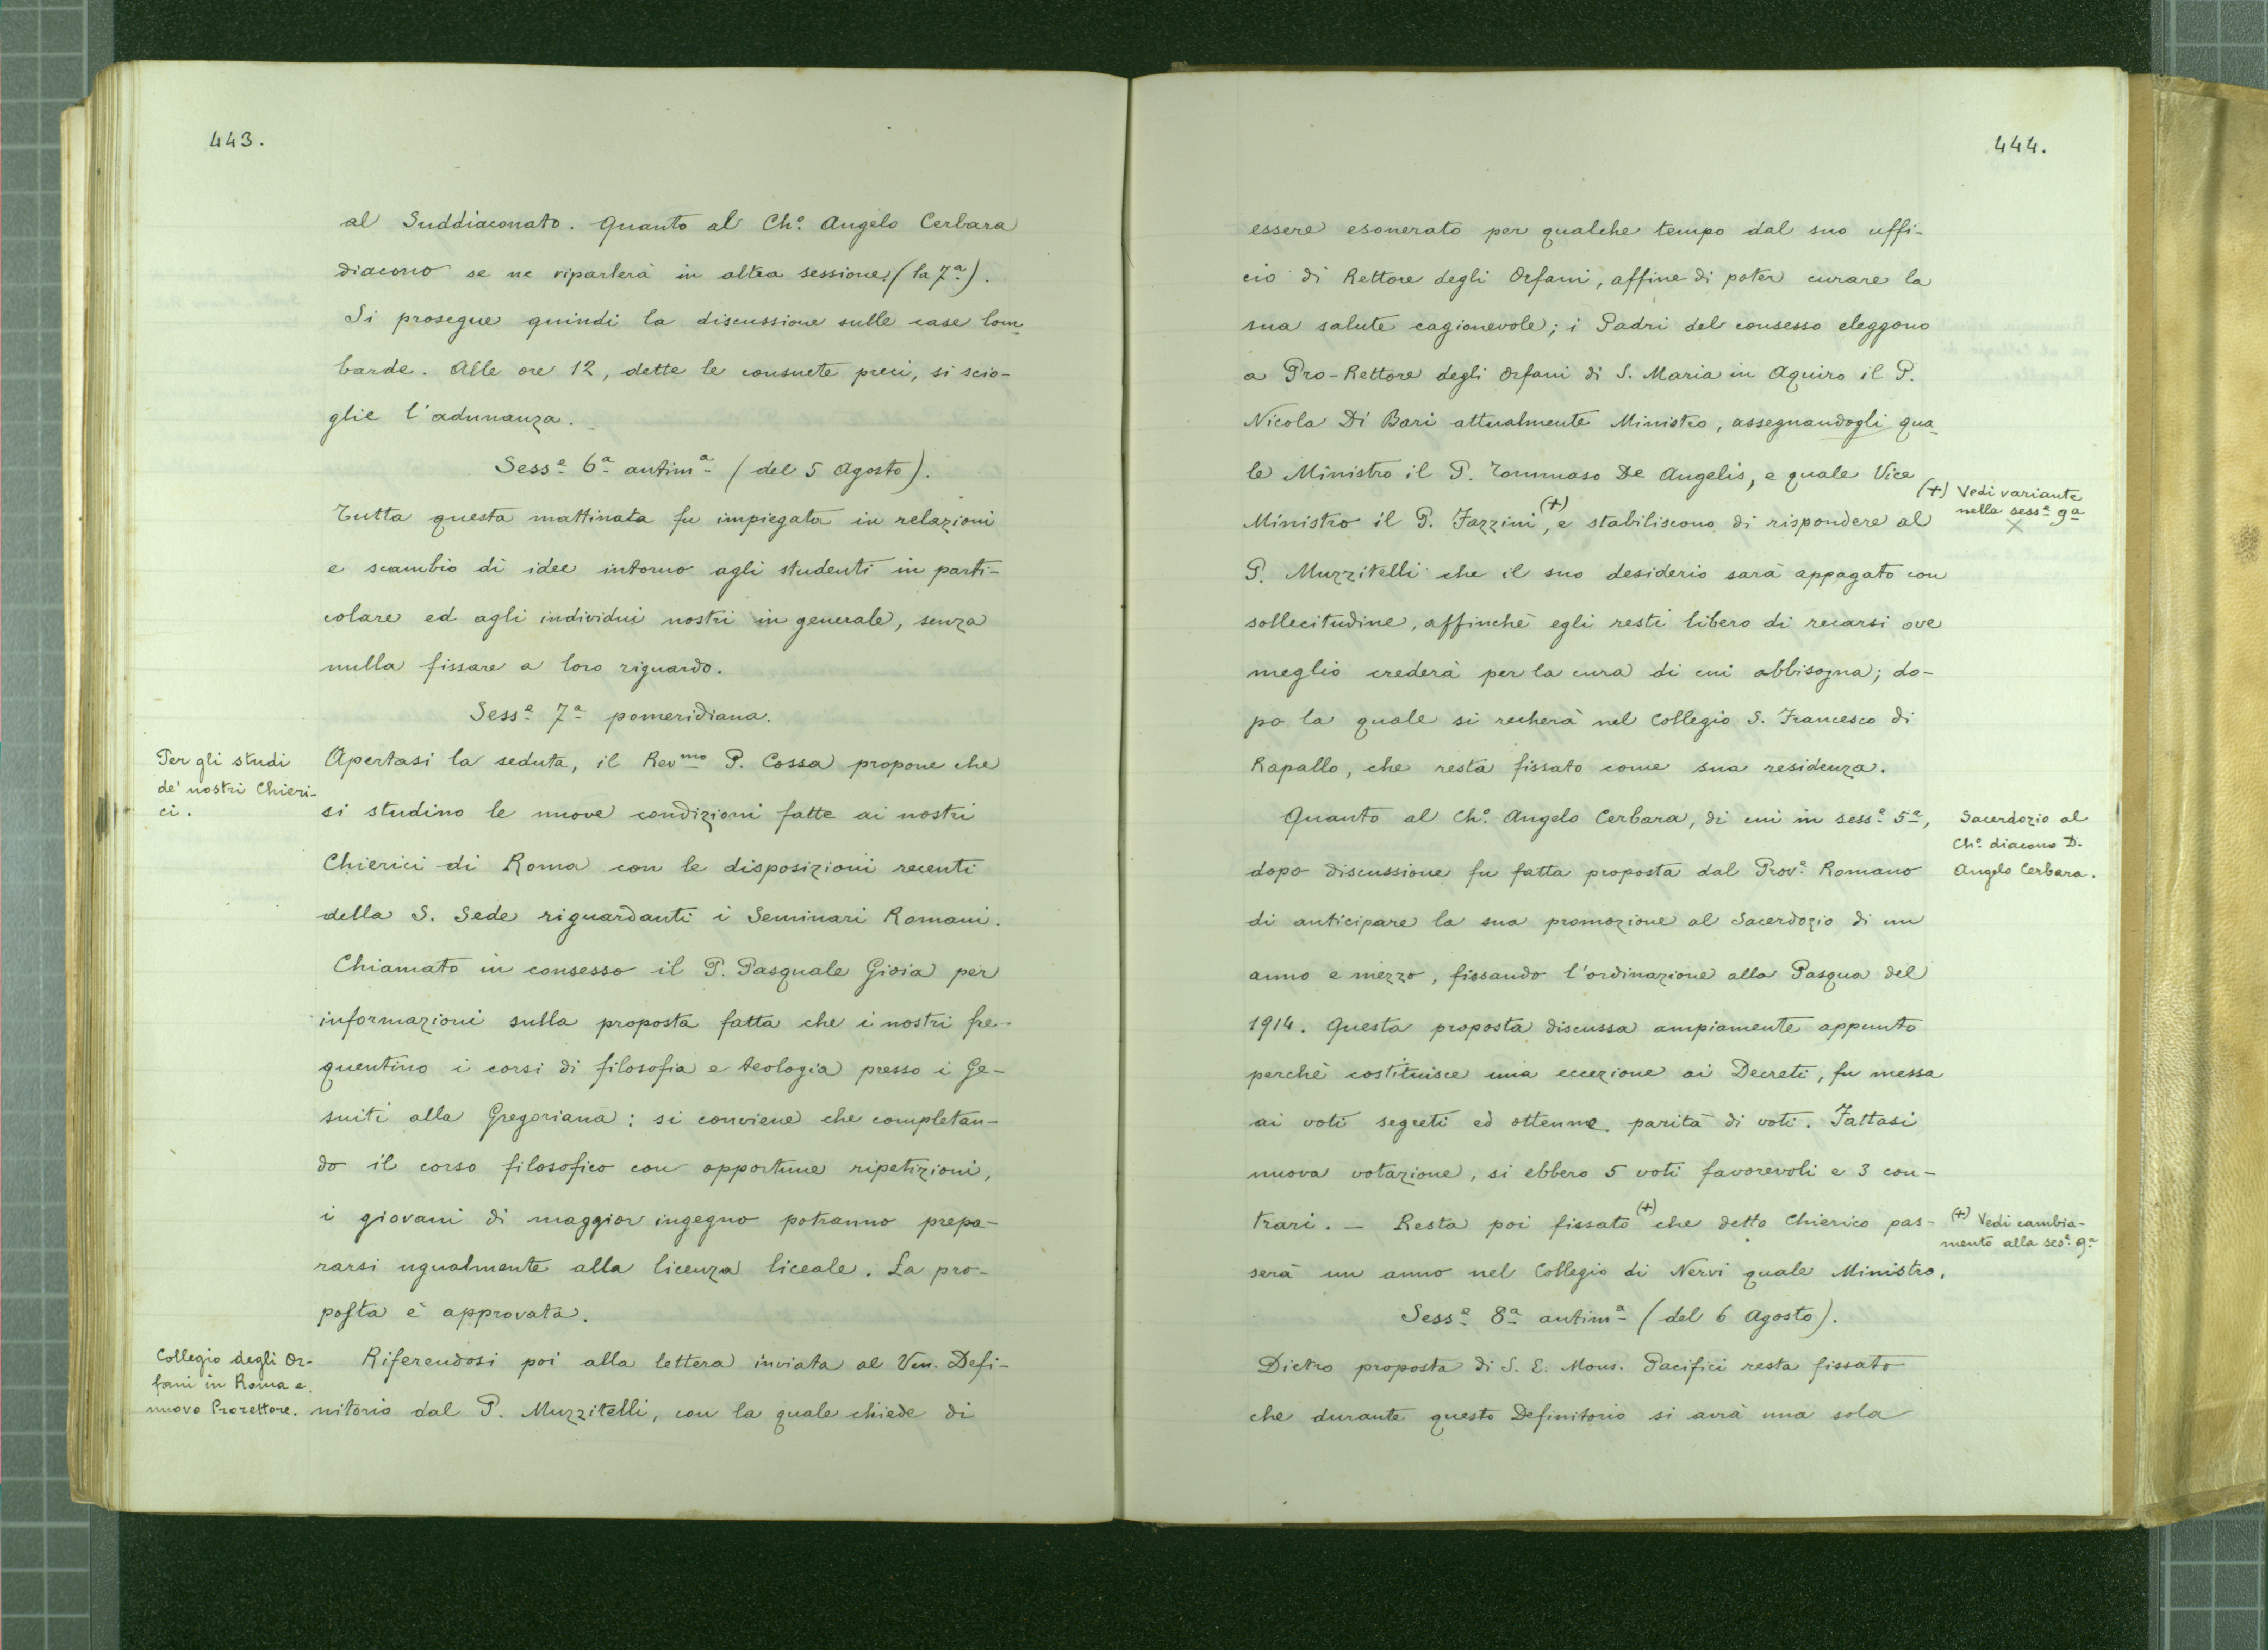 443.
al Suddiaconato. Quanto al Ch.º Angelo Cerbara
diacono se ne riparlerà in altra sessione (la 7ª).
Si prosegue quindi la discussione sulle case lom-
barde. Alle ore 12, dette le consuete preci, si scio-
glie l'adunanza.
Sess.e 6ª antim.ª (del 5 Agosto).
Tutta questa mattinata fu impiegata in relazioni
e scambio di idee intorno agli studenti in parti-
colare ed agli individui nostri in generale, senza
nulla fissare a loro riguardo.
Sess.e 7ª pomeridiana.
Per gli studi
de' nostri Chieri-
ci.
Apertasi la seduta, il Rev.mo P. Cossa propone che
si studino le nuove condizioni fatte ai nostri
Chierici di Roma con le disposizioni recenti
della S. Sede riguardanti i Seminari Romani.
Chiamato in consesso il P. Pasquale Gioia per
informazioni sulla proposta fatta che i nostri fre-
quentino i corsi di filosofia e teologia presso i Ge-
suiti alla Gregoriana: si conviene che completan-
do il corso filosofico con opportune ripetizioni,
i giovani di maggior ingegno potranno prepa-
rarsi ugualmente alla licenza liceale. La pro-
posta è approvata.
Collegio degli Or-
fani in Roma e
nuovo Prorettore.
Riferendosi poi alla lettera inviata al Ven. Defi-
nitorio dal P. Muzzitelli, con la quale chiede di
444.
essere esonerato per qualche tempo dal suo uffi-
cio di Rettore degli Orfani, affine di poter curare la
sua salute cagionevole; i Padri del consesso eleggono
a Pro-Rettore degli Orfani di S. Maria in Aquiro il P.
Nicola Di Bari attualmente Ministro, assegnandogli qua-
le Ministro il P. Tommaso De Angelis, e quale Vice
Ministro il P. Fazzini (+), e stabiliscono di rispondere al
(+) Vedi variante
nella sess.e 9ª
X
P. Muzzitelli che il suo desiderio sarà appagato con
sollecitudine, affinchè egli resti libero di recarsi ove
meglio crederà per la cura di cui abbisogna; do-
po la quale si recherà nel Collegio S. Francesco di
Rapallo, che resta fissato come sua residenza.
Quanto al Ch.º Angelo Cerbara, di cui in sess.e 5ª,
dopo discussione fu fatta proposta dal Prov.e Romano
di anticipare la sua promozione al Sacerdozio di un
anno e mezzo, fissando l'ordinazione alla Pasqua del
Sacerdozio al
Ch.º diacono D.
Angelo Cerbara.
1914. Questa proposta discussa ampiamente appunto
perchè costituisce una eccezione ai Decreti, fu messa
ai voti segreti ed ottenne parità di voti. Fattasi
nuova votazione, si ebbero 5 voti favorevoli e 3 con-
trari. – Resta poi fissato (+) che detto Chierico pas-
serà un anno nel Collegio di Nervi quale Ministro.
(+) Vedi cambia-
mento alla ses.e 9ª
Sess.e 8ª antim.ª (del 6 Agosto).
Dietro proposta di S. E. Mons. Pacifici resta fissato
che durante questo Definitorio si avrà una sola